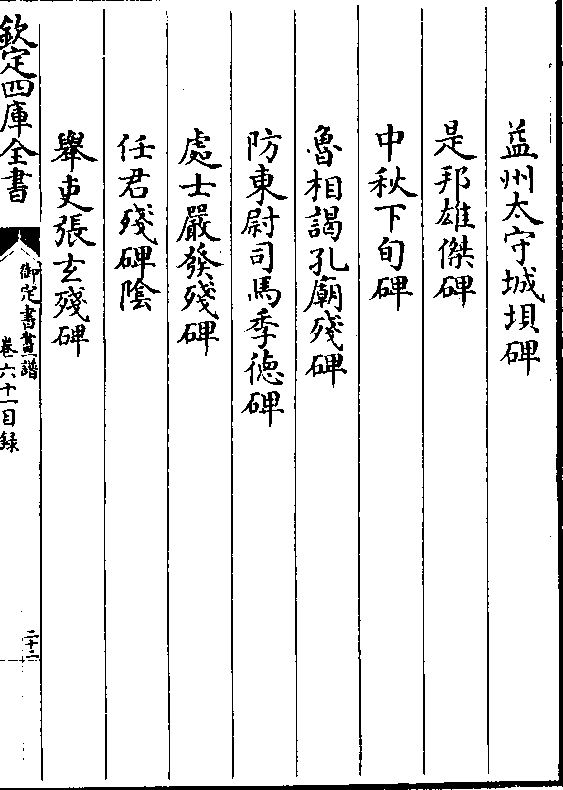 益州太守城垻碑
是邦雄傑碑
中秋下旬碑
魯相謁孔廟殘碑
防東尉司馬季徳碑
處士嚴發殘碑
任君殘碑隂
舉吏張玄殘碑
欽定四庫全書
御定書畫譜
卷六十一目録
二十二